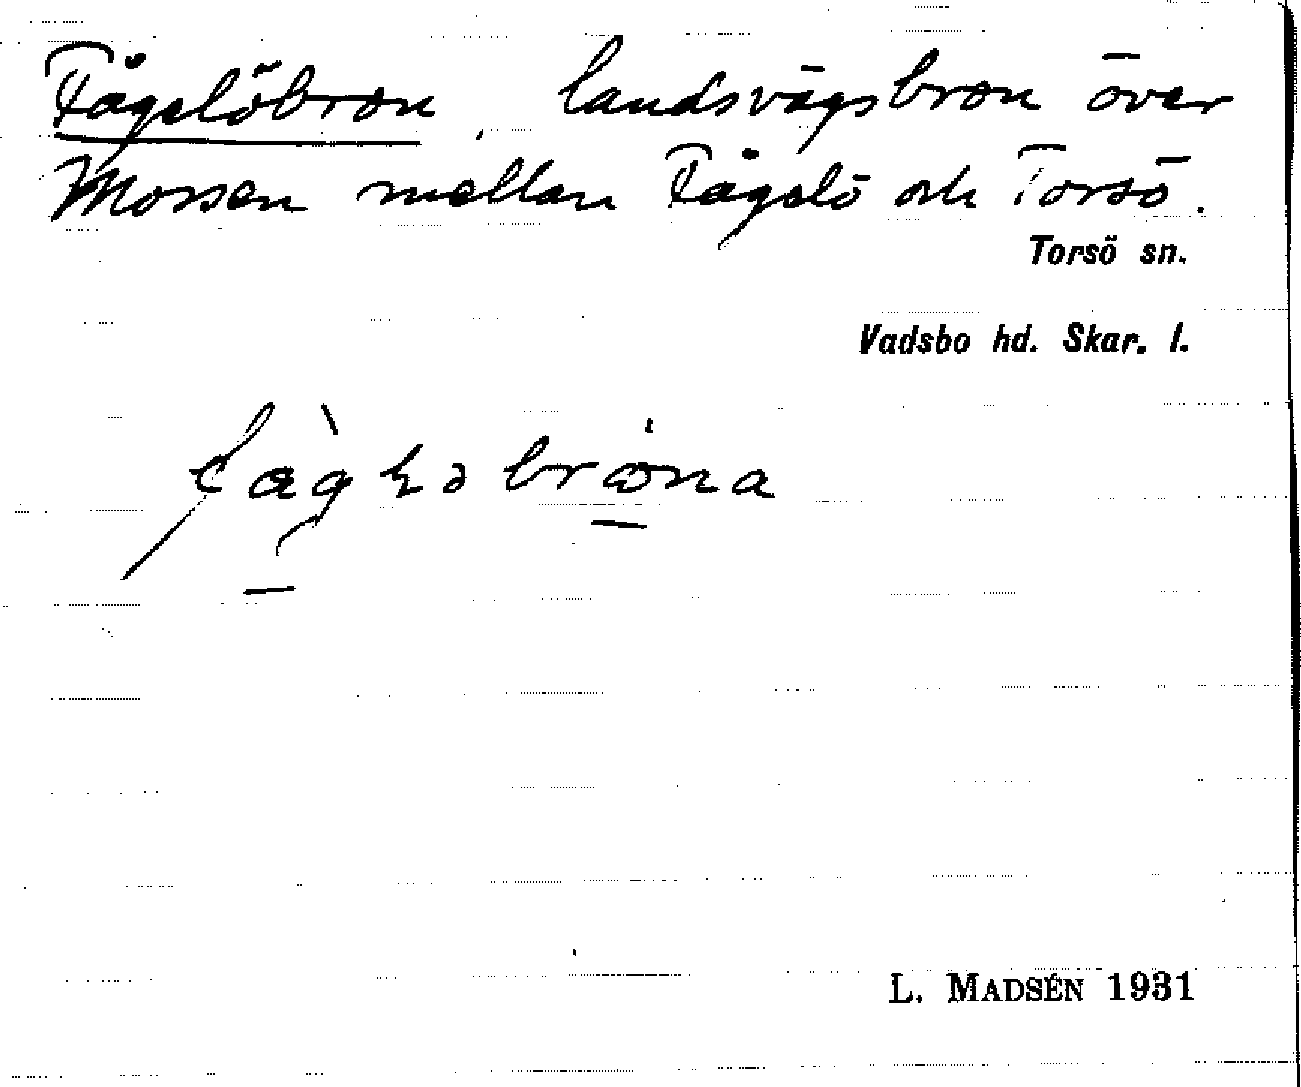 Fågelöbron, landsvägsbron över
Mossen mellan Fågelö och Torsö.
Torsö sn.
Vadsbo hd. Skar. l.
L. MADSÉN 1931